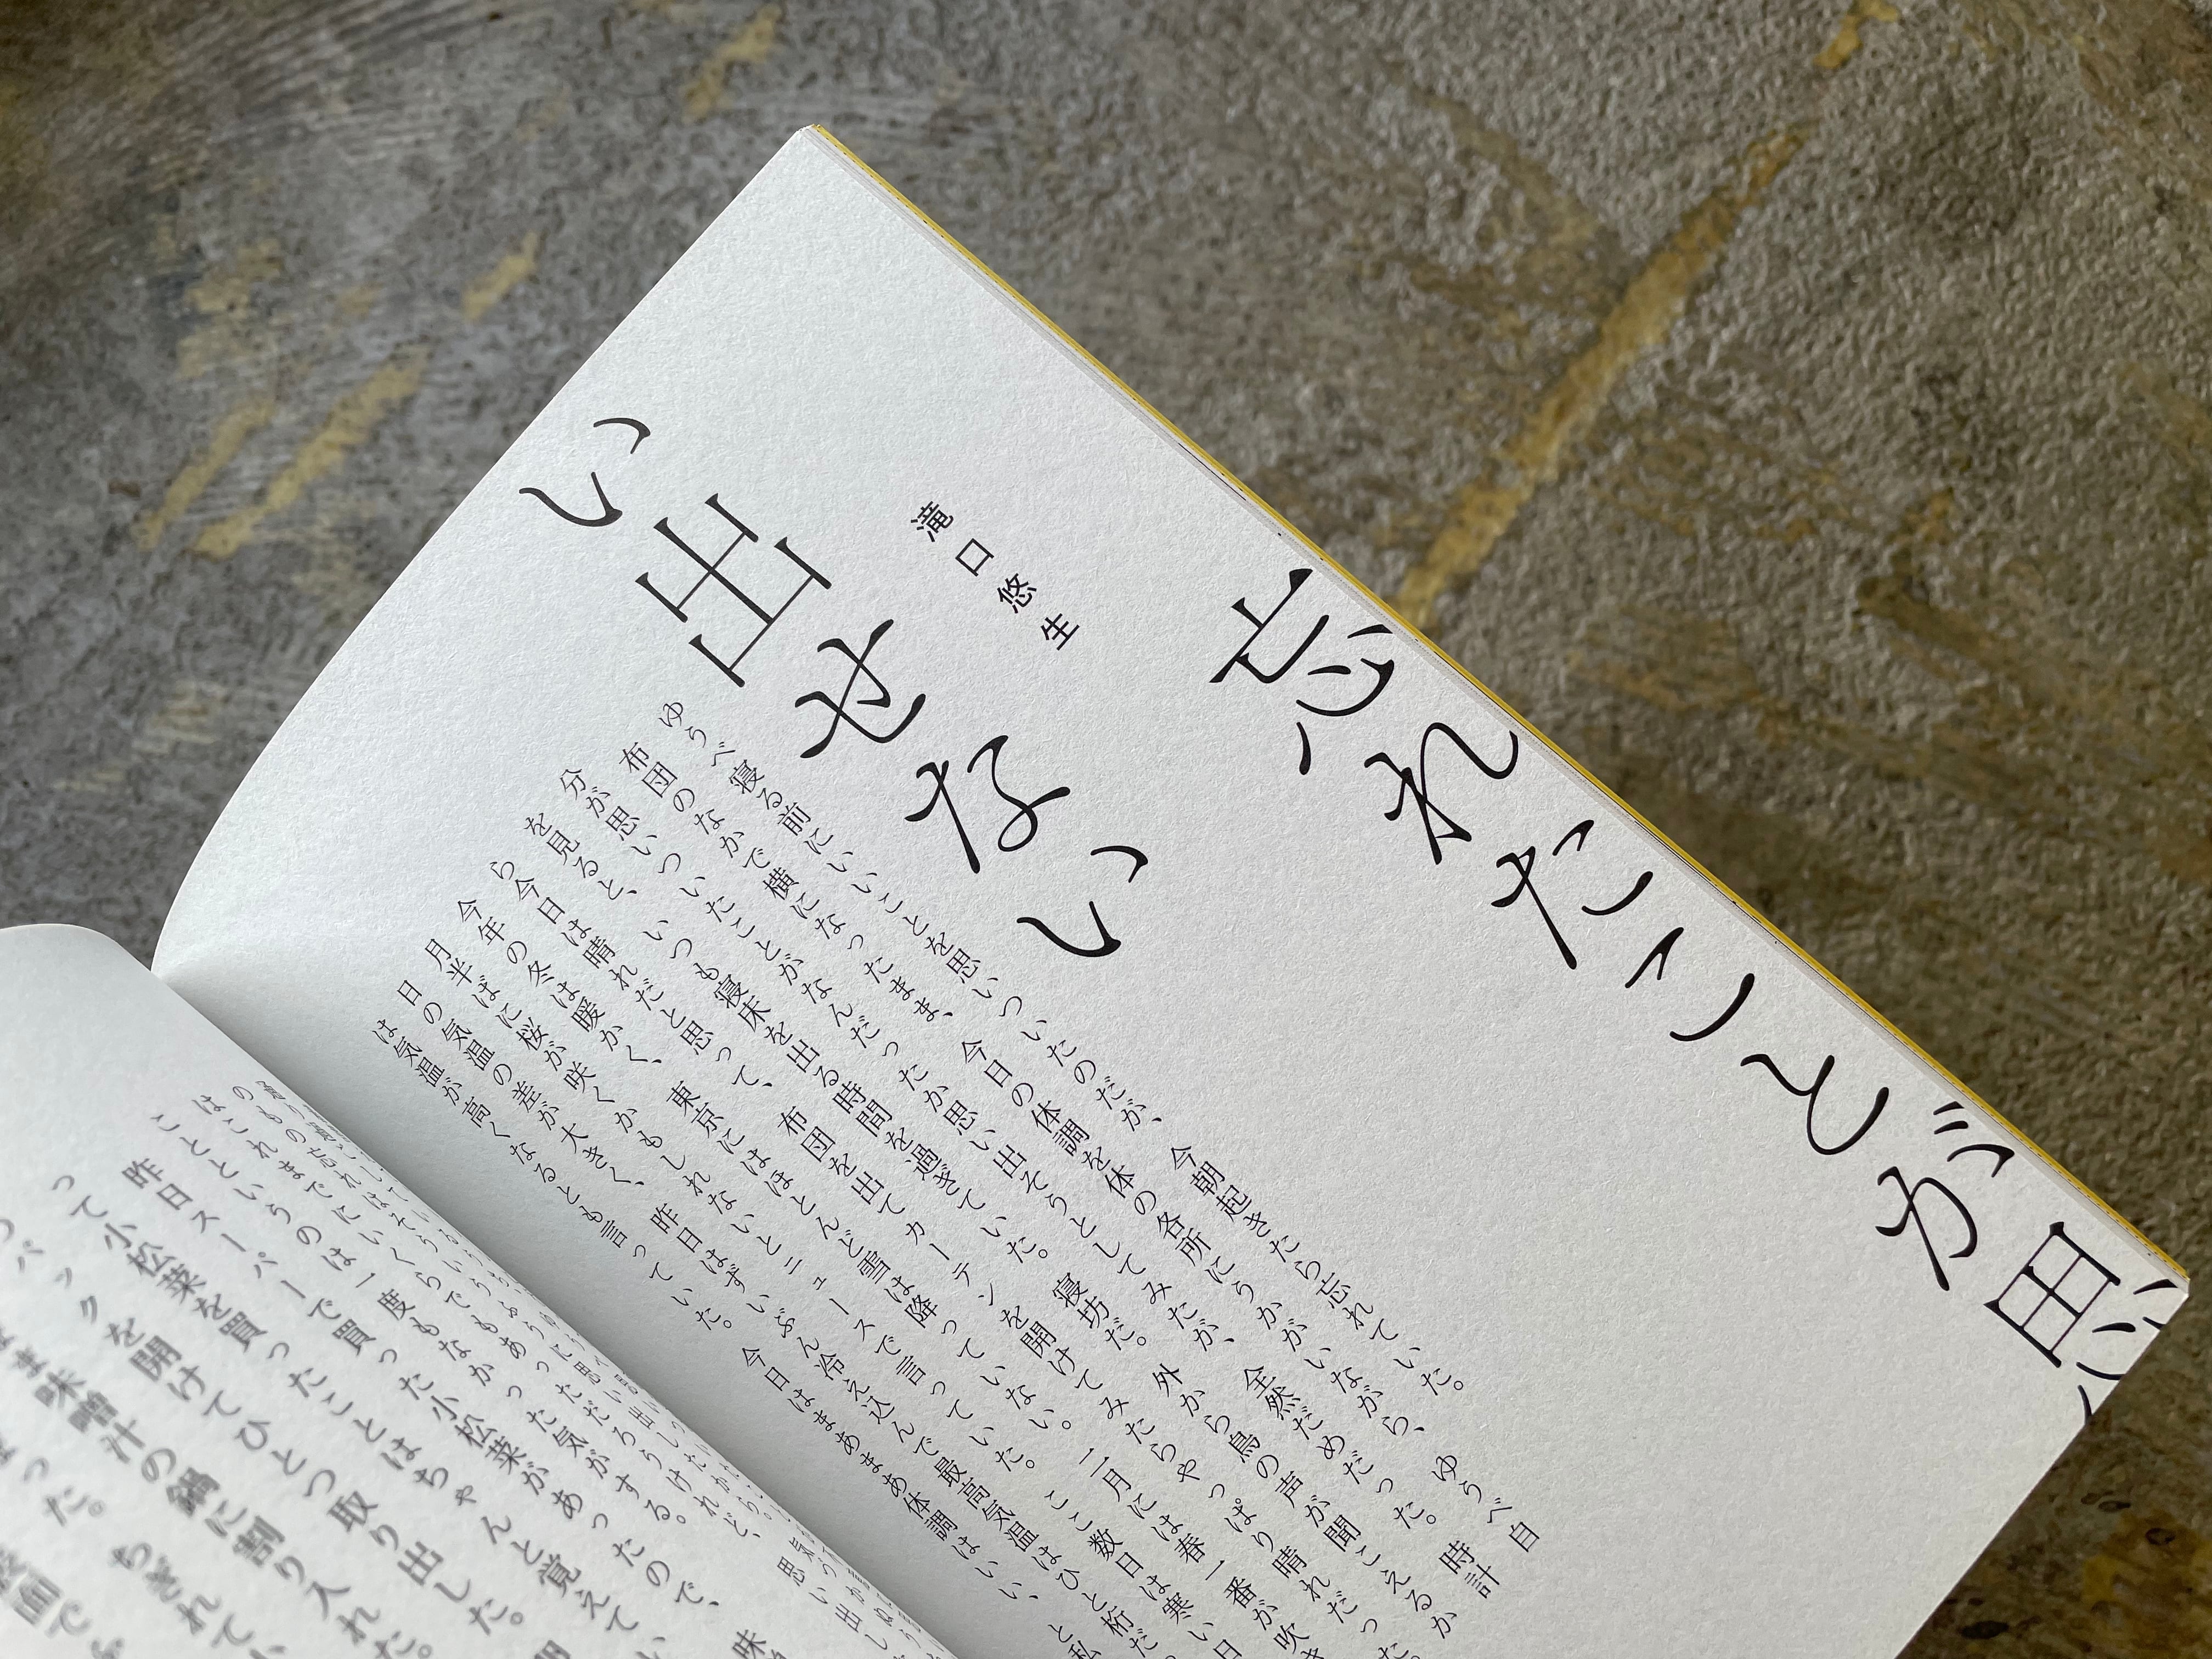 忘れたことが思
い出せない
滝口悠生
ゆうべ寝る前にいいことを思いついたのだが、今朝起きたら忘れていた。
布団のなかで横になったまま、今日の体調を体の各所にうかがいながら、ゆうべ自
分が思いついたことがなんだったか思い出そうとしてみたが、全然だめだった。時計
を見ると、いつも寝床を出る時間を過ぎていた。寝坊だ。外から鳥の声が聞こえるか
ら今日は晴れだと思って、布団を出てカーテンを開けてみたらやっぱり晴れだった。
今年の冬は暖かく、東京にはほとんど雪は降っていない。二月には春一番が吹き
月半ばに桜が咲くかもしれないとニュースで言っていた。ここ数日は寒い日
日の気温の差が大きく、昨日はずいぶん冷え込んで最高気温はひと桁だ
は気温が高くなるとも言っていた。今日はまあまあ体調はいい、と私
のもの忘れはそういうふうに思い出し
はこれまでにいくらでもあっただろうけれど、思い出し
ことというのは一度もなかった気がする。
昨日スーパーで買った小松菜があったので、味
って小松菜を買ったことはちゃんと覚えてい
パックを開けてひとつ取り出した。
味噌汁の鍋に割り入れた。
った。ちぎれて